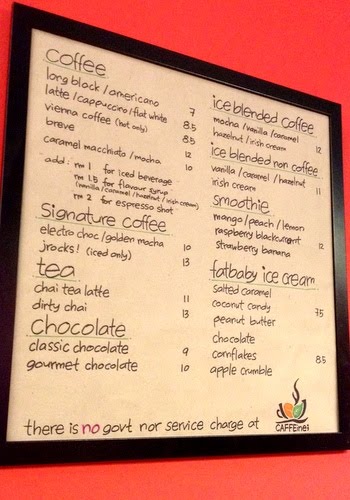 coffee
long black / americano 7
latte / cappuccino / flat white 8.5
vienna coffee (hot only) 8.5
breve 12
caramel macchiato / mocha 10
add : rm 1 for iced beverage
rm 1.5 for flavour syrup
(vanilla / caramel / hazelnut / irish cream)
rm 2 for espresso shot
signature coffee
electro choc / golden mocha 10
jrocks! (iced only) 13
tea
chai tea latte 11
dirty chai 13
chocolate
classic chocolate 9
gourmet chocolate 10
ice blended coffee
mocha / vanilla / caramel
hazelnut / irish cream 12
ice blended non coffee
vanilla / caramel / hazelnut
irish cream 11
smoothie
mango / peach / lemon
raspberry blackcurrant
strawberry banana 12
fatbaby ice cream
salted caramel
coconut candy
peanut butter 7.5
chocolate
cornflakes
apple crumble 8.5
there is no govt nor service charge at
CAFFEine